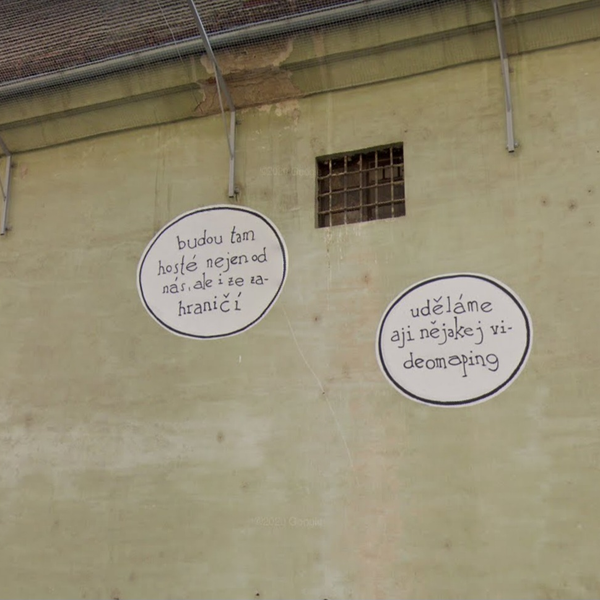 budou tam
hosté nejen od
nás, ale i ze za-
hraničí
uděláme
aji nějakej vi-
deomaping